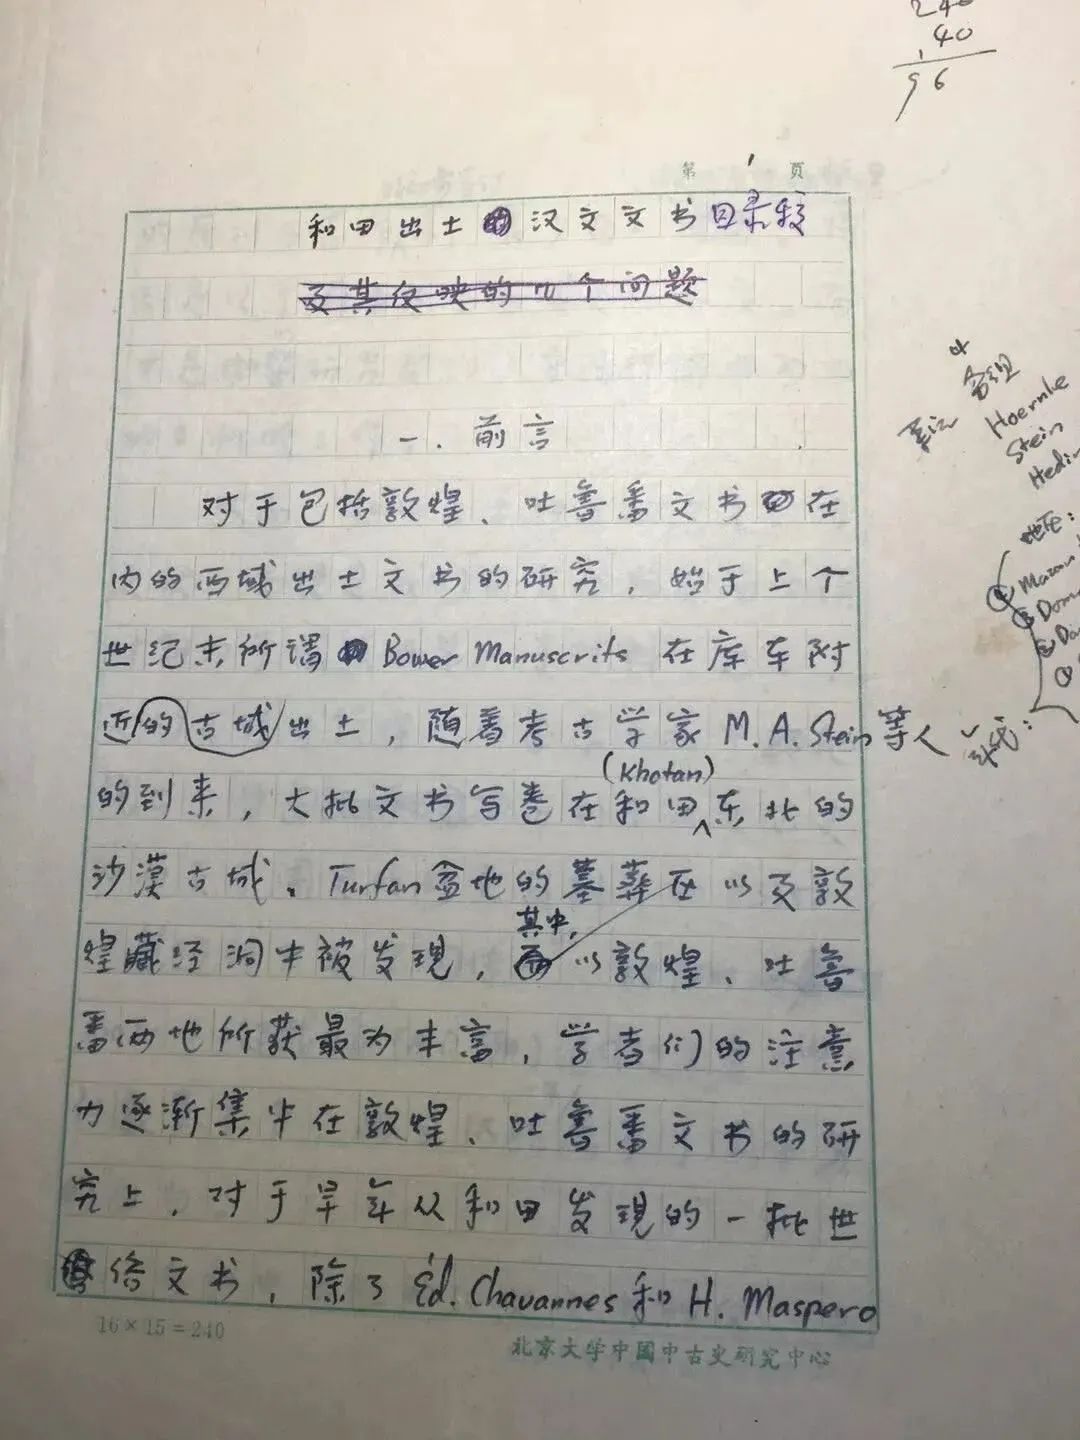 240
40
96
第 1 页
和田出土的汉文文书目录稿
及其反映的几个问题
一．前言
对于包括敦煌、吐鲁番文书在
内的西域出土文书的研究，始于上个
世纪末所谓 Bower Manuscrits 在库车附
近的古城出土，随着考古学家 M. A. Stein 等人
(Khotan)
的到来，大批文书写卷在和田东北的
沙漠古城、Turfan 盆地的墓葬在以及敦
其中，
煌藏经洞中被发现，以敦煌、吐鲁
番两地所获最为丰富，学者们的注意
力逐渐集中在敦煌、吐鲁番文书的研
究上，对于早年从和田发现的一批世
俗文书，除了 Éd. Chavannes 和 H. Maspero
16×15=240
北京大学中国中古史研究中心
Hoernle
Stein
Hedin